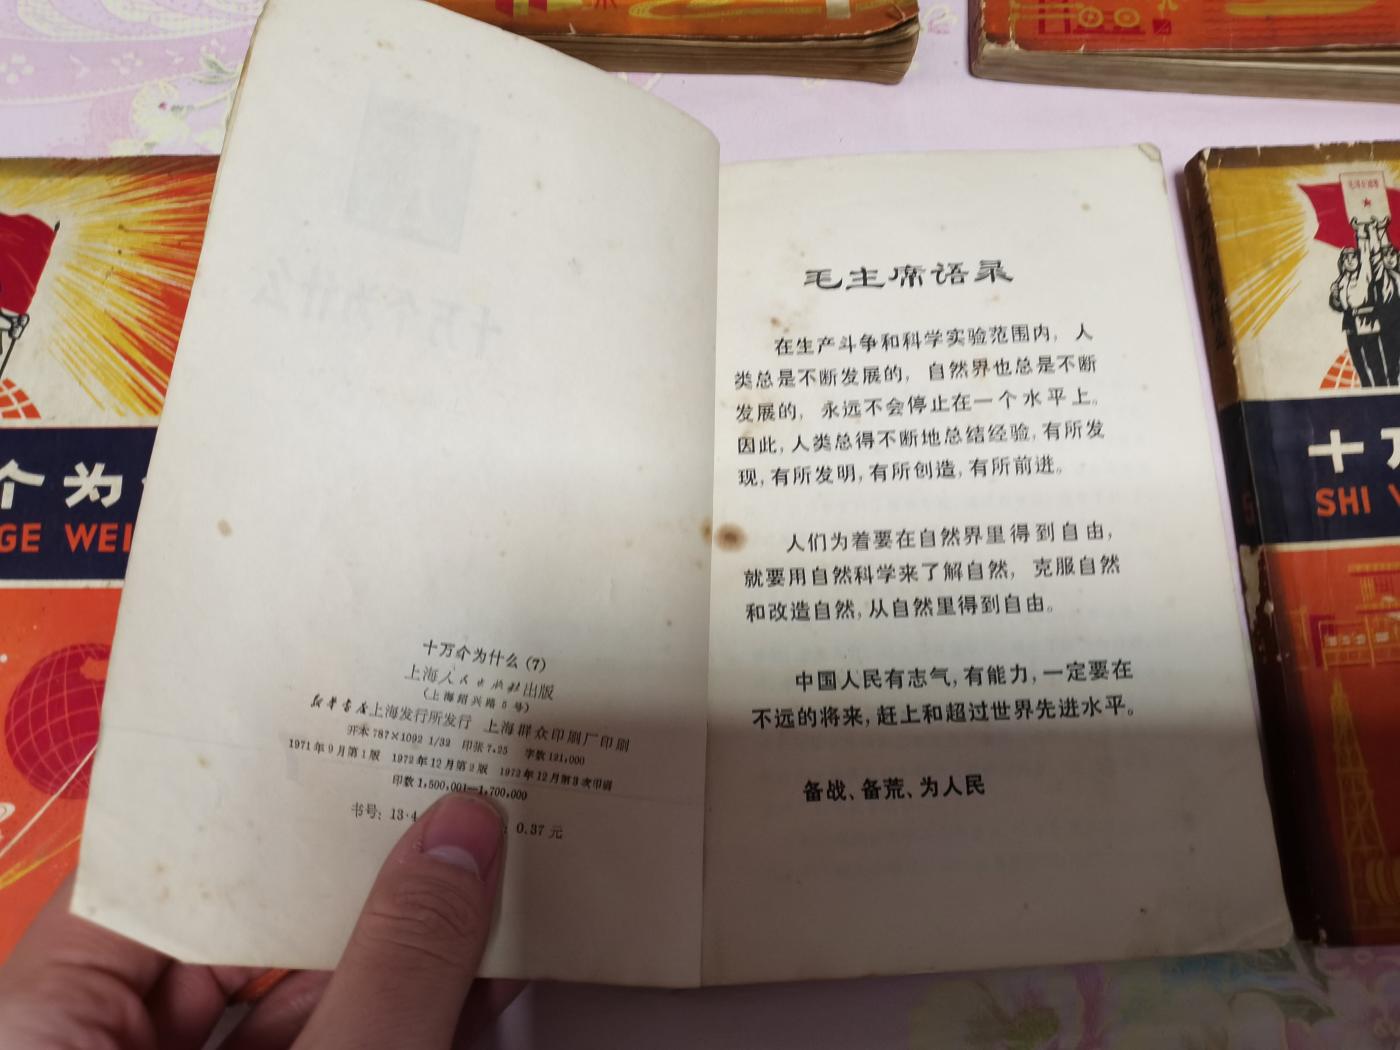 十万个为什么
十万个为什么（7）
上海人民出版社出版
（上海绍兴路5号）
新华书店上海发行所发行 上海群众印刷厂印刷
开本 787×1092 1/32 印张 7.25 字数 121,000
1971年9月第1版 1972年12月第2版 1972年12月第3次印刷
印数 1,500,001—1,700,000
书号：13·4
：0.37元
毛主席语录
在生产斗争和科学实验范围内，人
类总是不断发展的，自然界也总是不断
发展的，永远不会停止在一个水平上。
因此，人类总得不断地总结经验，有所发
现，有所发明，有所创造，有所前进。
人们为着要在自然界里得到自由，
就要用自然科学来了解自然，克服自然
和改造自然，从自然里得到自由。
中国人民有志气，有能力，一定要在
不远的将来，赶上和超过世界先进水平。
备战、备荒、为人民
个为
GE WEI
十万
SHI